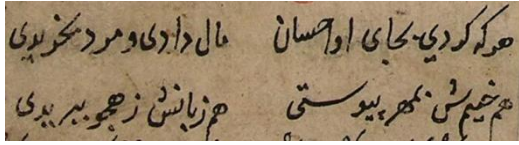 هرکه کردی بجای او احسان مال دادی و مرد بخریدی
هم ضمیرش بمهر پیوستی هم زبانش ز هجو ببریدی